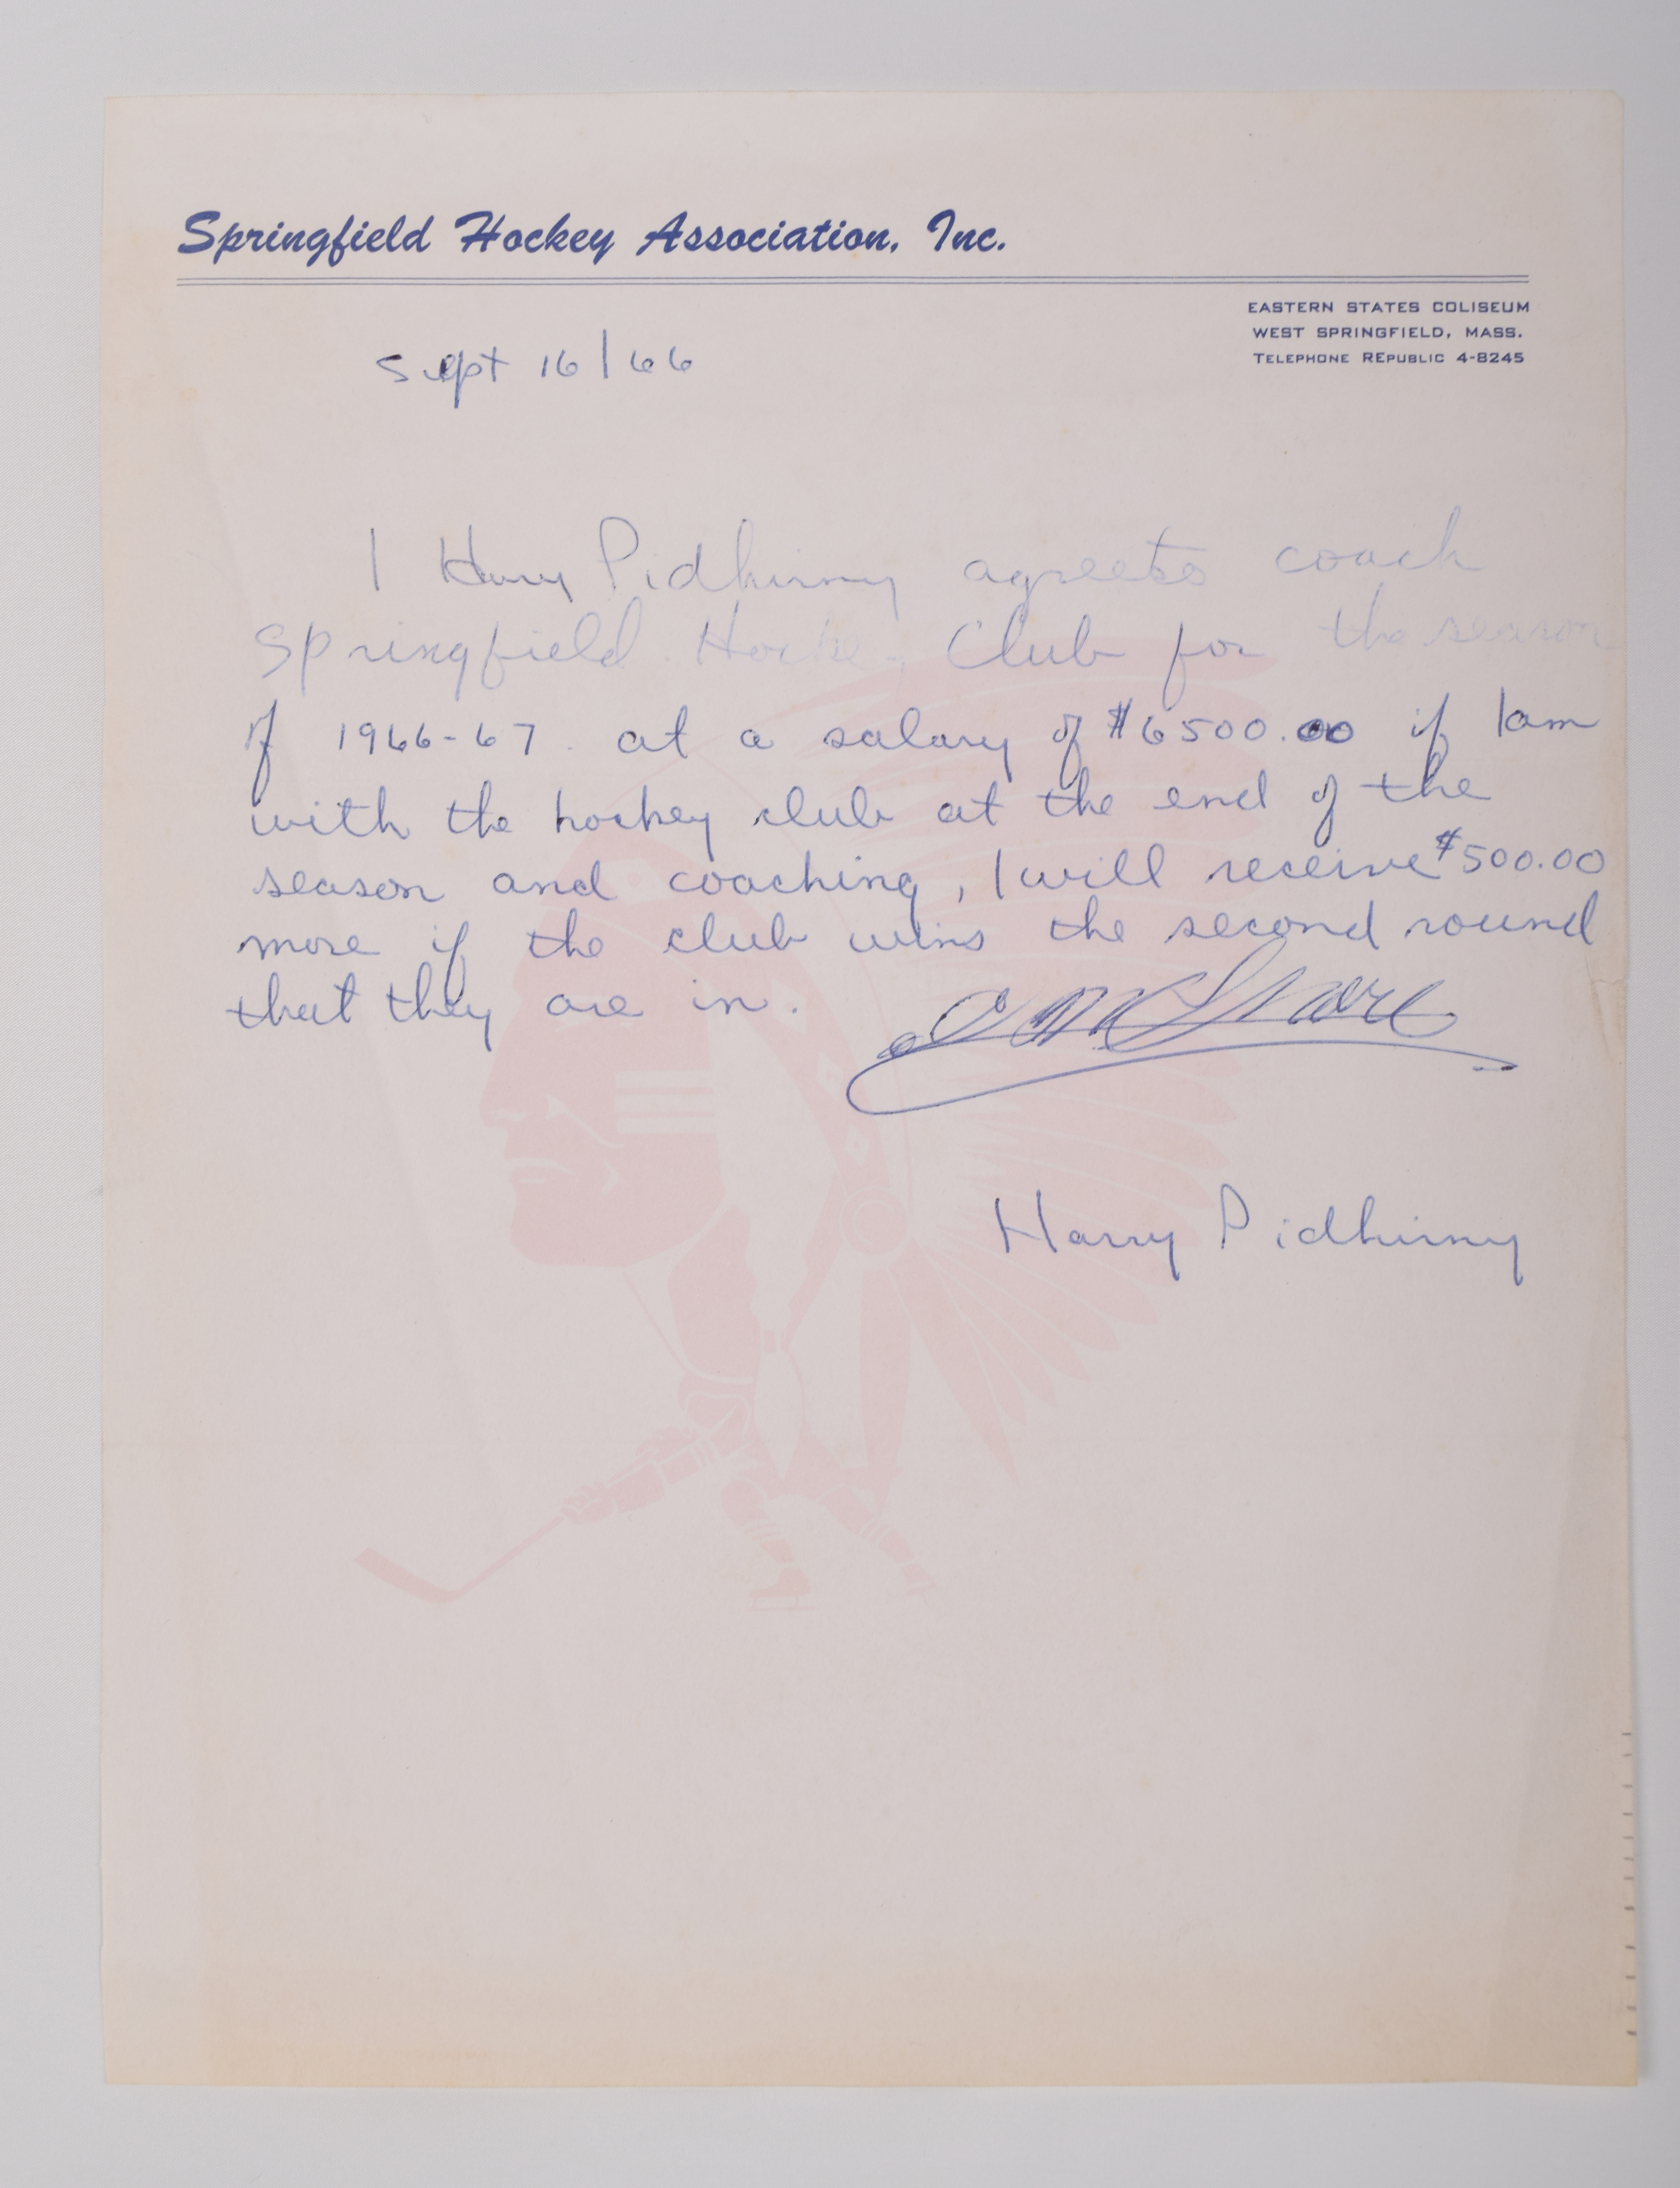 Springfield Hockey Association, Inc.
EASTERN STATES COLISEUM
WEST SPRINGFIELD, MASS.
TELEPHONE REPUBLIC 4-8245
Sept 16/66
I Harry Pidhirny agrees to coach
Springfield Hockey Club for the season
of 1966-67 at a salary of $6500.00 if I am
with the hockey club at the end of the
season and coaching, I will receive $500.00
more if the club wins the second round
that they are in.
Harry Pidhirny